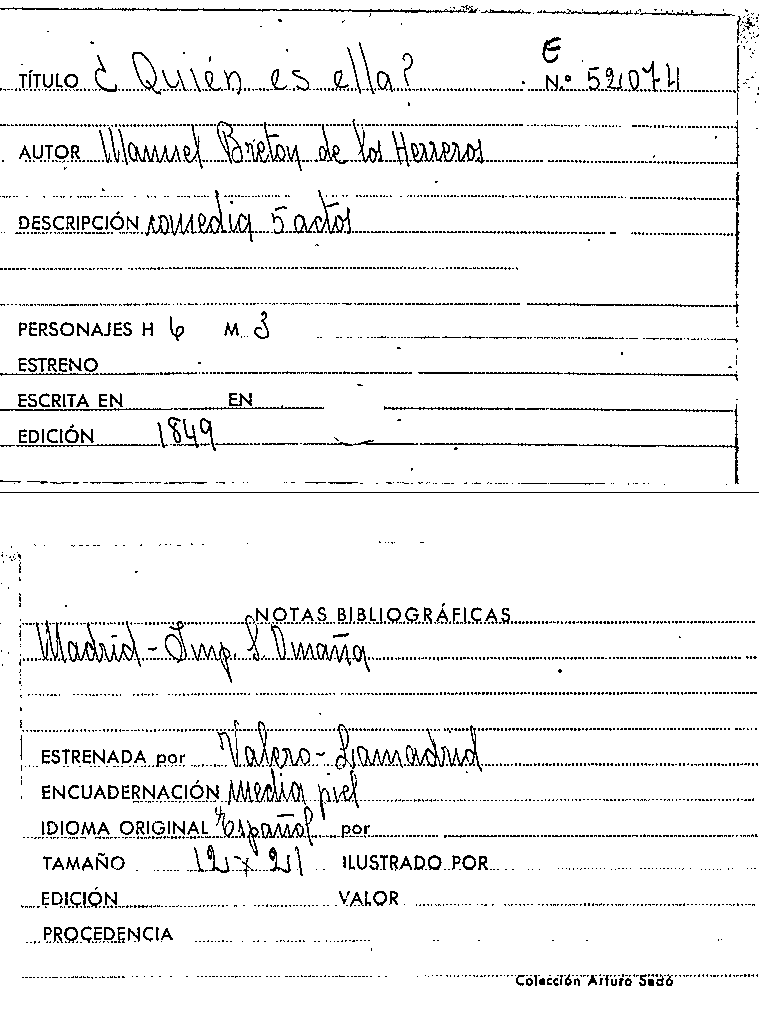 E
TÍTULO ¿Quién es ella? N.º 52074
AUTOR Manuel Breton de los Herreros
DESCRIPCIÓN comedia 5 actos
PERSONAJES H 6 M. 3
ESTRENO
ESCRITA EN EN
EDICIÓN 1849
NOTAS BIBLIOGRÁFICAS
Madrid - Imp. S. Omaña
ESTRENADA por Valero - Lamadrid
ENCUADERNACIÓN media piel
IDIOMA ORIGINAL Español por
TAMAÑO 12 x 21 ILUSTRADO POR
EDICIÓN VALOR
PROCEDENCIA
Colección Arturo Sedó